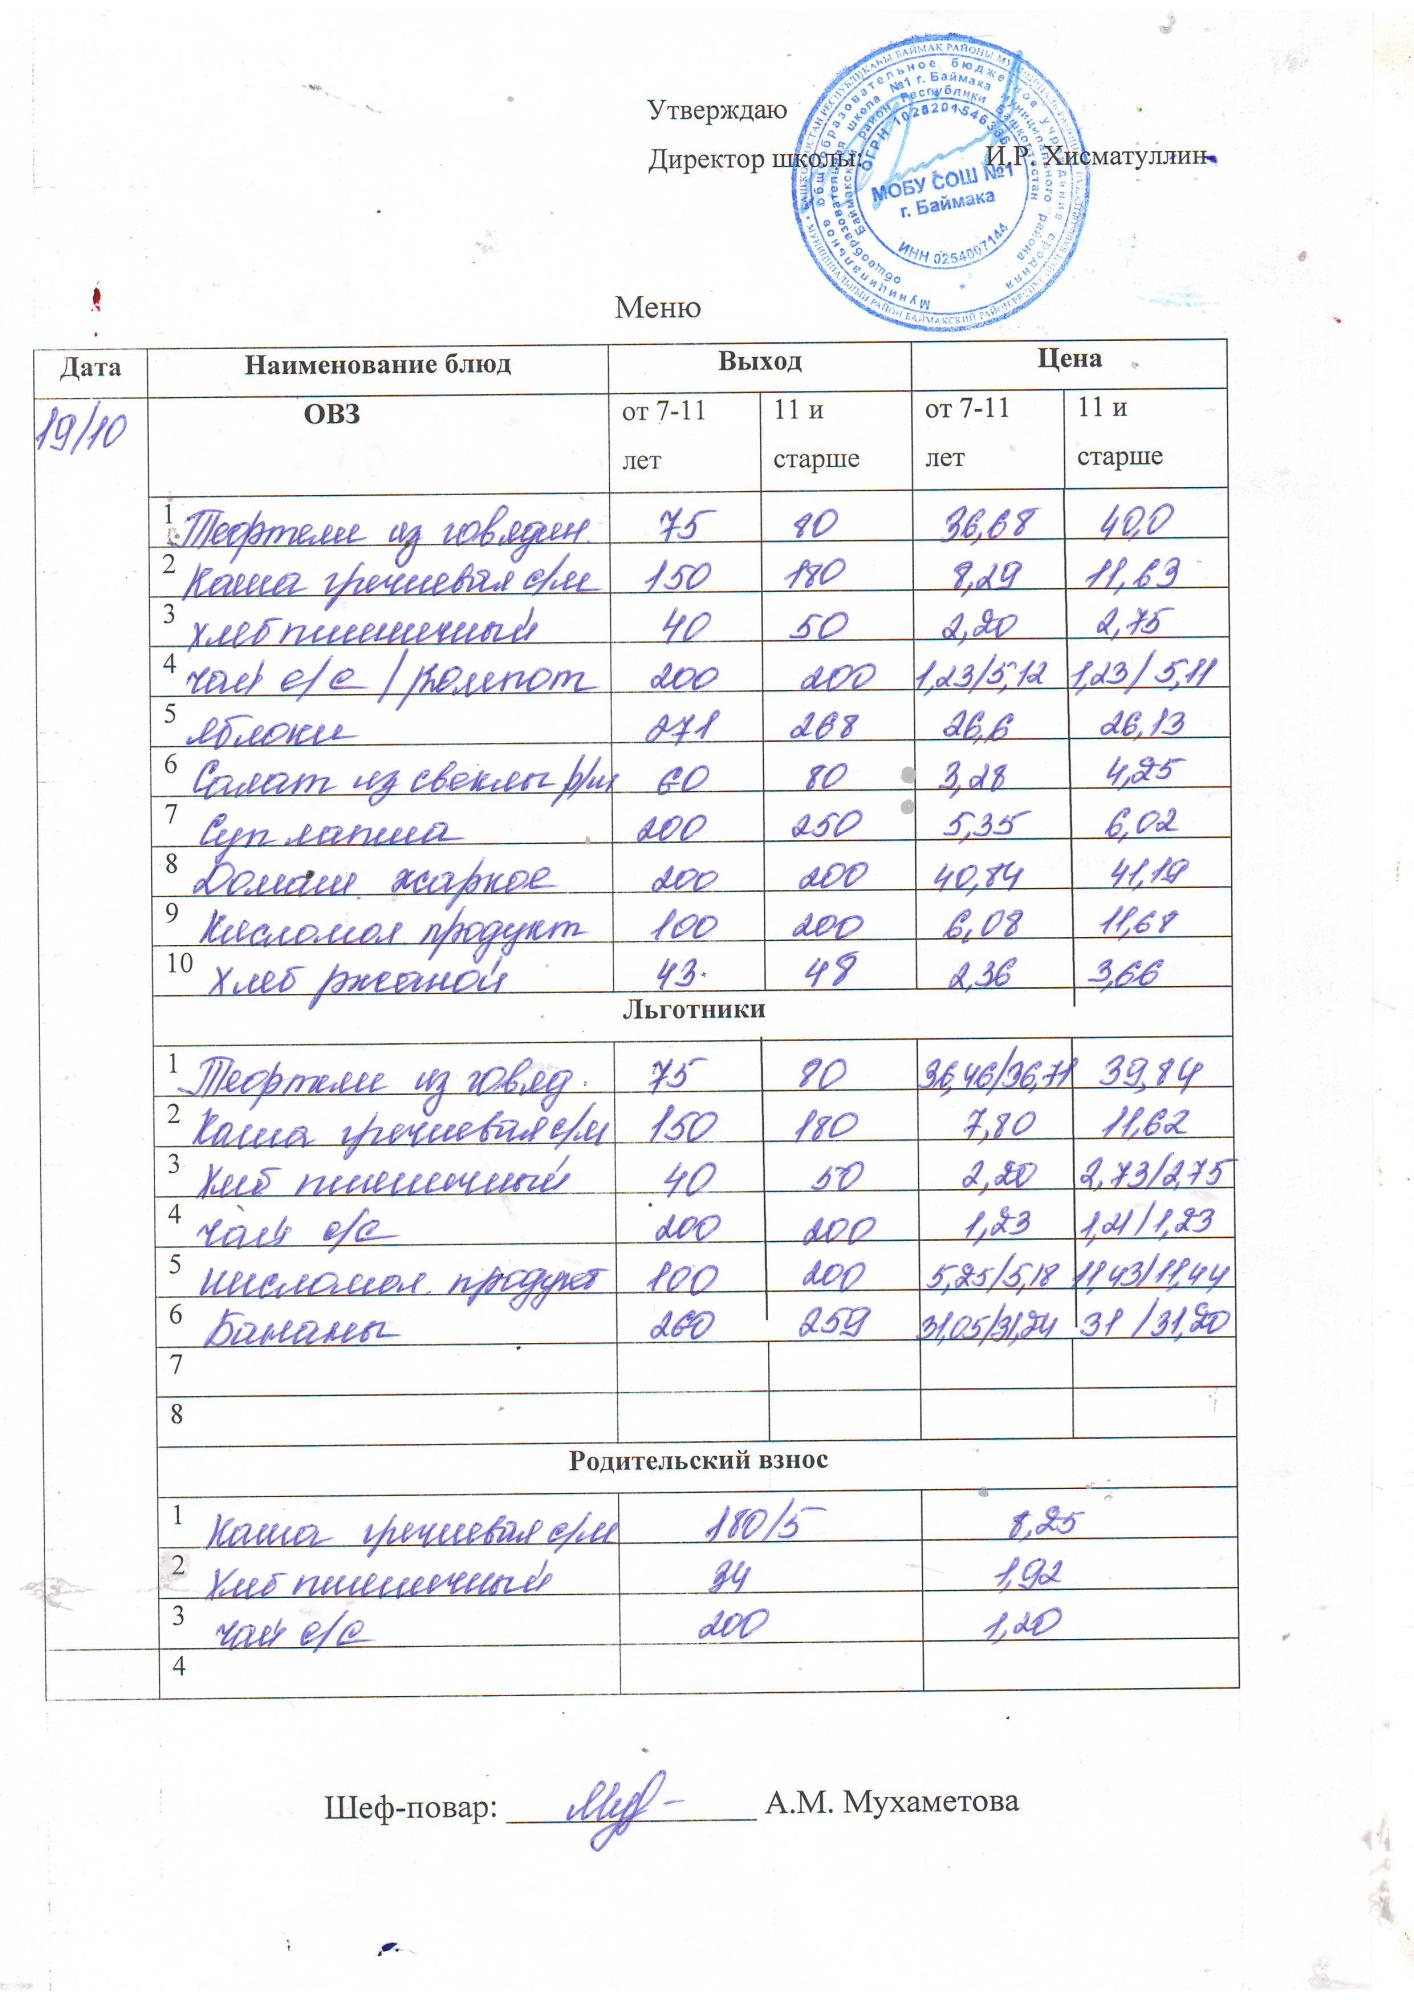 Утверждаю
Директор школы: И.Р. Хисматуллин
МОБУ СОШ №1
г. Баймака
ОГРН 1020201546386
ИНН 0254007144
Меню
Дата Наименование блюд Выход Цена
19/10 ОВЗ от 7-11 лет 11 и старше от 7-11 лет 11 и старше
1 Тефтели из говядин. 75 80 36,68 40,0
2 Каша гречневая с/м 150 180 8,29 11,63
3 хлеб пшеничный 40 50 2,20 2,75
4 чай с/с / Компот 200 200 1,23/5,12 1,23/5,11
5 яблоки 271 268 26,6 26,13
6 Салат из свеклы р/м 60 80 3,28 4,25
7 Суп лапша 200 250 5,35 6,02
8 Домаш. жаркое 200 200 40,84 41,19
9 Кисломол. продукт 100 200 6,08 11,68
10 Хлеб ржаной 43 48 2,36 3,66
Льготники
1 Тефтели из говяд. 75 80 36,46/36,71 39,84
2 Каша гречневая с/м 150 180 7,80 11,62
3 Хлеб пшеничный 40 50 2,20 2,73/2,75
4 чай с/с 200 200 1,23 1,21/1,23
5 кисломол. продукт 100 200 5,25/5,18 11,43/11,44
6 Бананы 260 259 31,05/31,24 31 /31,20
7
8
Родительский взнос
1 Каша гречневая с/м 180/5 8,25
2 Хлеб пшеничный 34 1,92
3 чай с/с 200 1,20
4
Шеф-повар: А.М. Мухаметова